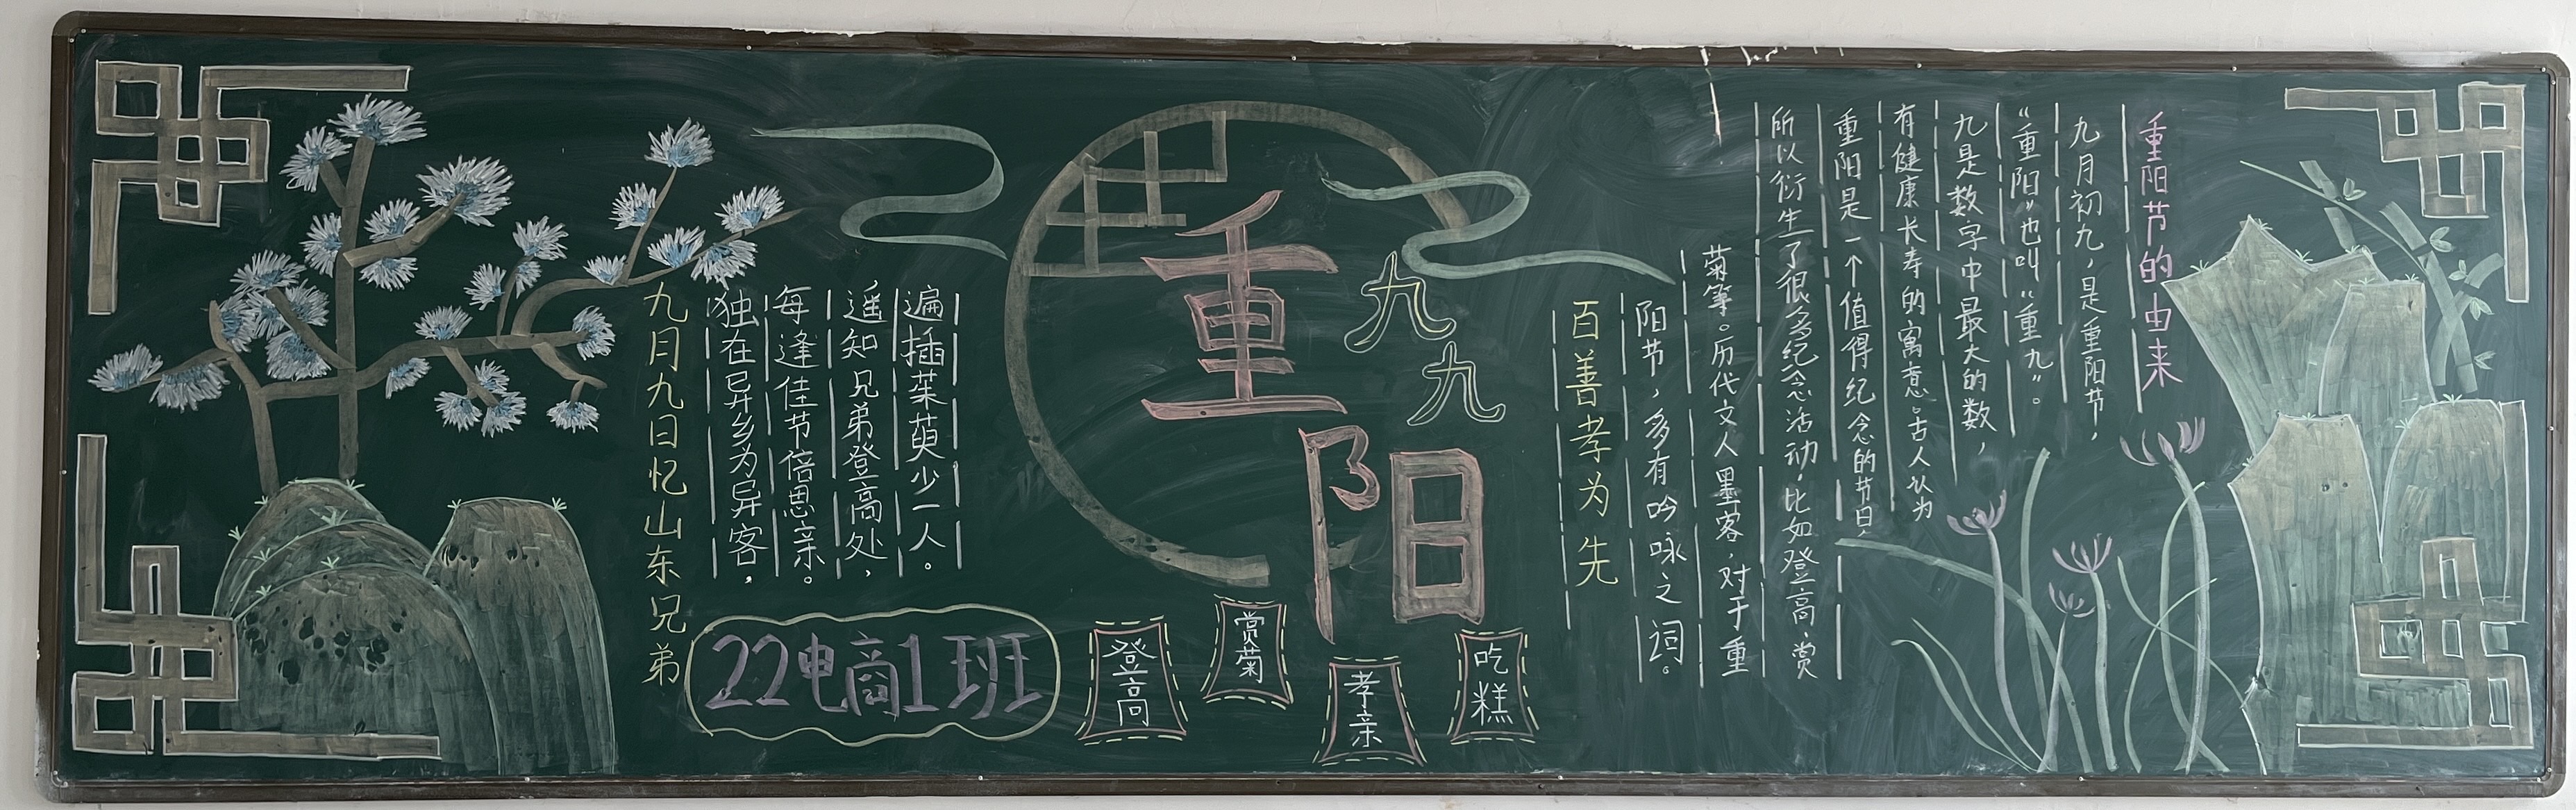 九月九日忆山东兄弟
独在异乡为异客，
每逢佳节倍思亲。
遥知兄弟登高处，
遍插茱萸少一人。
22电商1班
重阳
九九
登高
赏菊
孝亲
吃糕
重阳节的由来
九月初九，是重阳节，
“重阳”也叫“重九”。
九是数字中最大的数，
有健康长寿的寓意。古人认为
重阳是一个值得纪念的节日，
所以衍生了很多纪念活动，比如登高、赏
菊等。历代文人墨客，对于重
阳节，多有吟咏之词。
百善孝为先